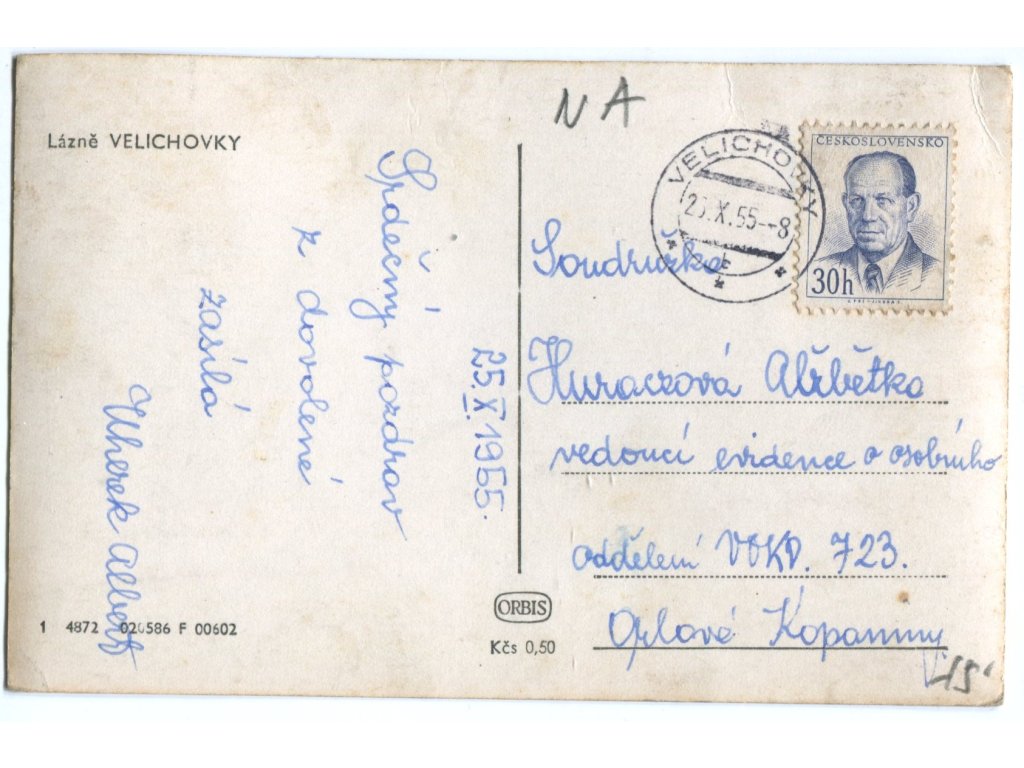 Lázně VELICHOVKY
Srdečný pozdrav
z dovolené
zasílá
Uherek Albert
25.X.1955.
1 4872 020586 F 00602
ORBIS
Kčs 0,50
NA
VELICHOVKY
25.X.55--8
ČESKOSLOVENSKO
30h
Soudružka
Huraczová Alžbětka
vedoucí evidence o osobního
oddělení VOKD. 723.
Orlové Kopaniny
15